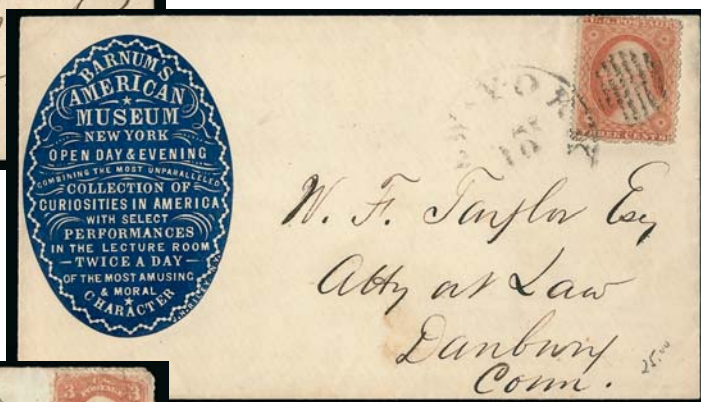 BARNUM'S
AMERICAN
MUSEUM
NEW YORK
OPEN DAY & EVENING
COMBINING THE MOST UNPARALLELED
COLLECTION OF
CURIOSITIES IN AMERICA
WITH SELECT
PERFORMANCES
IN THE LECTURE ROOM
TWICE A DAY
OF THE MOST AMUSING
& MORAL
CHARACTER
U.S. POSTAGE
THREE CENTS
W. F. Taylor Esq
Atty at Law
Danbury
Conn.
25.00
3 3